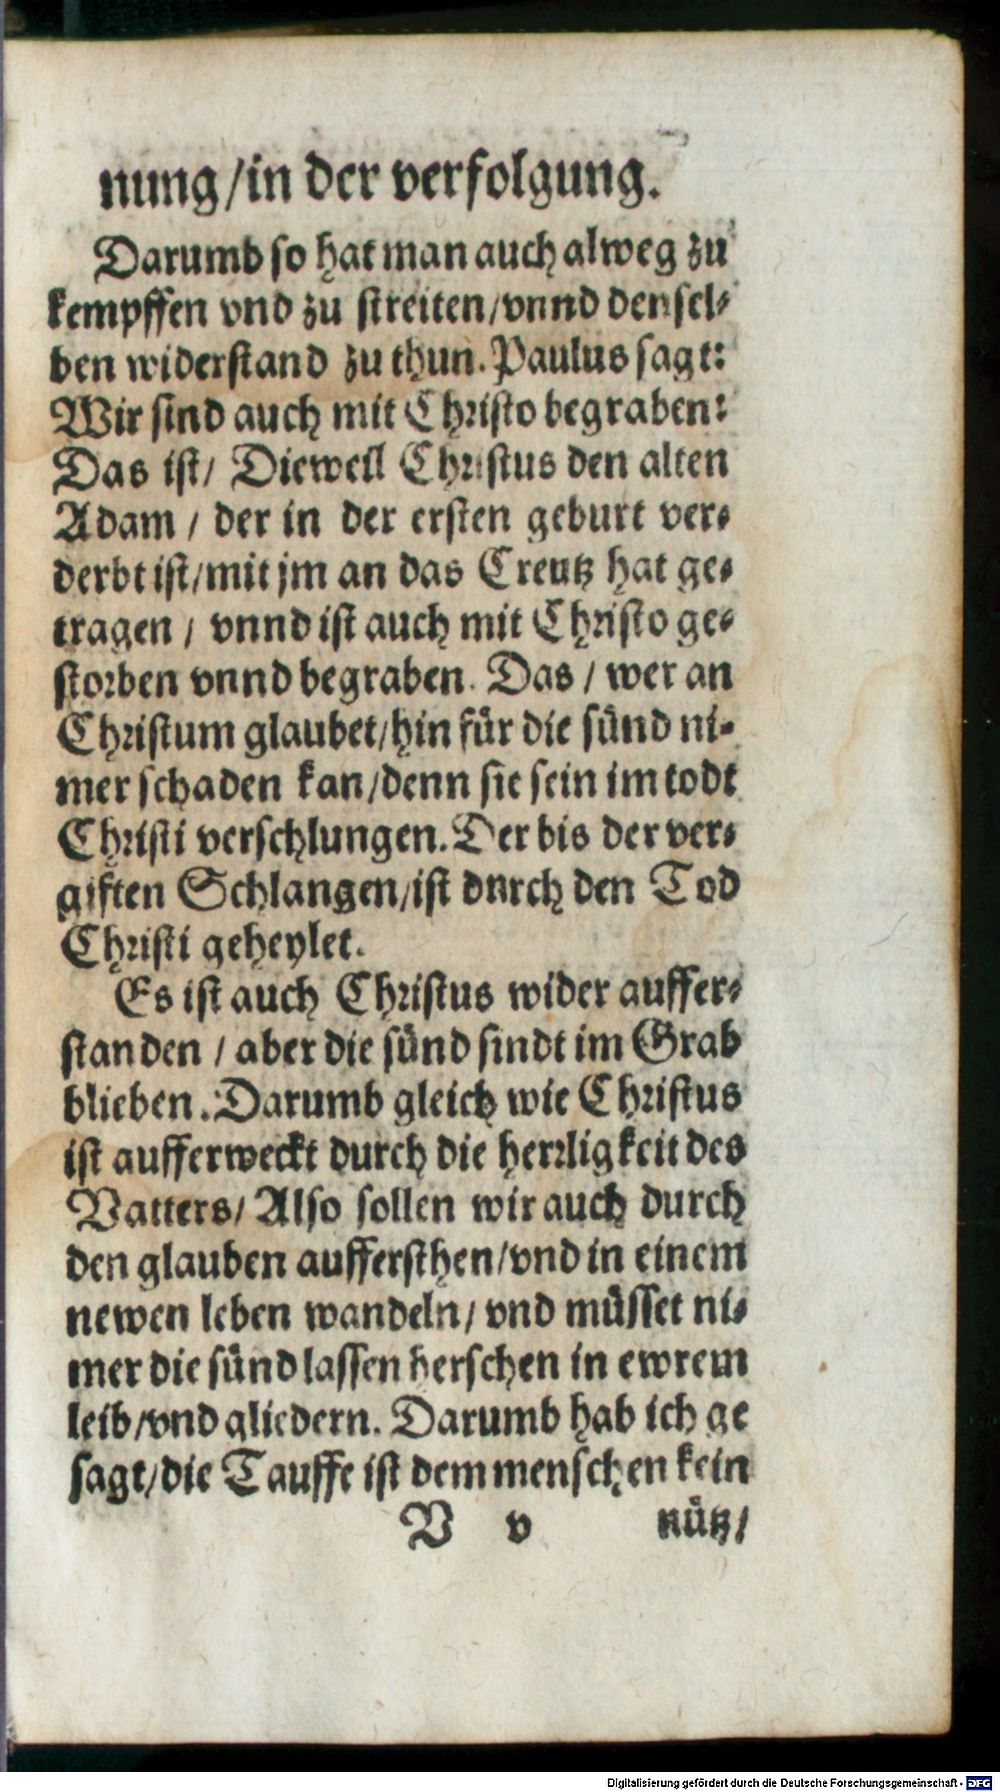 nung/in der verfolgung.
Darumb so hat man auch alweg zu
kempffen vnd zu streiten/vnnd densel-
ben widerstand zu thun. Paulus sagt:
Wir sind auch mit Christo begraben:
Das ist/ Dieweil Christus den alten
Adam / der in der ersten geburt ver-
derbt ist/mit jm an das Creutz hat ge-
tragen / vnnd ist auch mit Christo ge-
storben vnnd begraben. Das / wer an
Christum glaubet/hin für die sünd ni-
mer schaden kan/denn sie sein im todt
Christi verschlungen. Der bis der ver-
giften Schlangen/ist dnrch den Tod
Christi geheylet.
Es ist auch Christus wider auffer-
standen / aber die sünd sindt im Grab
blieben. Darumb gleich wie Christus
ist aufferweckt durch die herrligkeit des
Vatters/ Also sollen wir auch durch
den glauben auffersthen/vnd in einem
newen leben wandeln/ vnd müsset ni-
mer die sünd lassen herschen in ewrem
leib/vnd gliedern. Darumb hab ich ge
sagt/die Tauffe ist dem menschen kein
V v nütz/
Digitalisierung gefördert durch die Deutsche Forschungsgemeinschaft - DFG